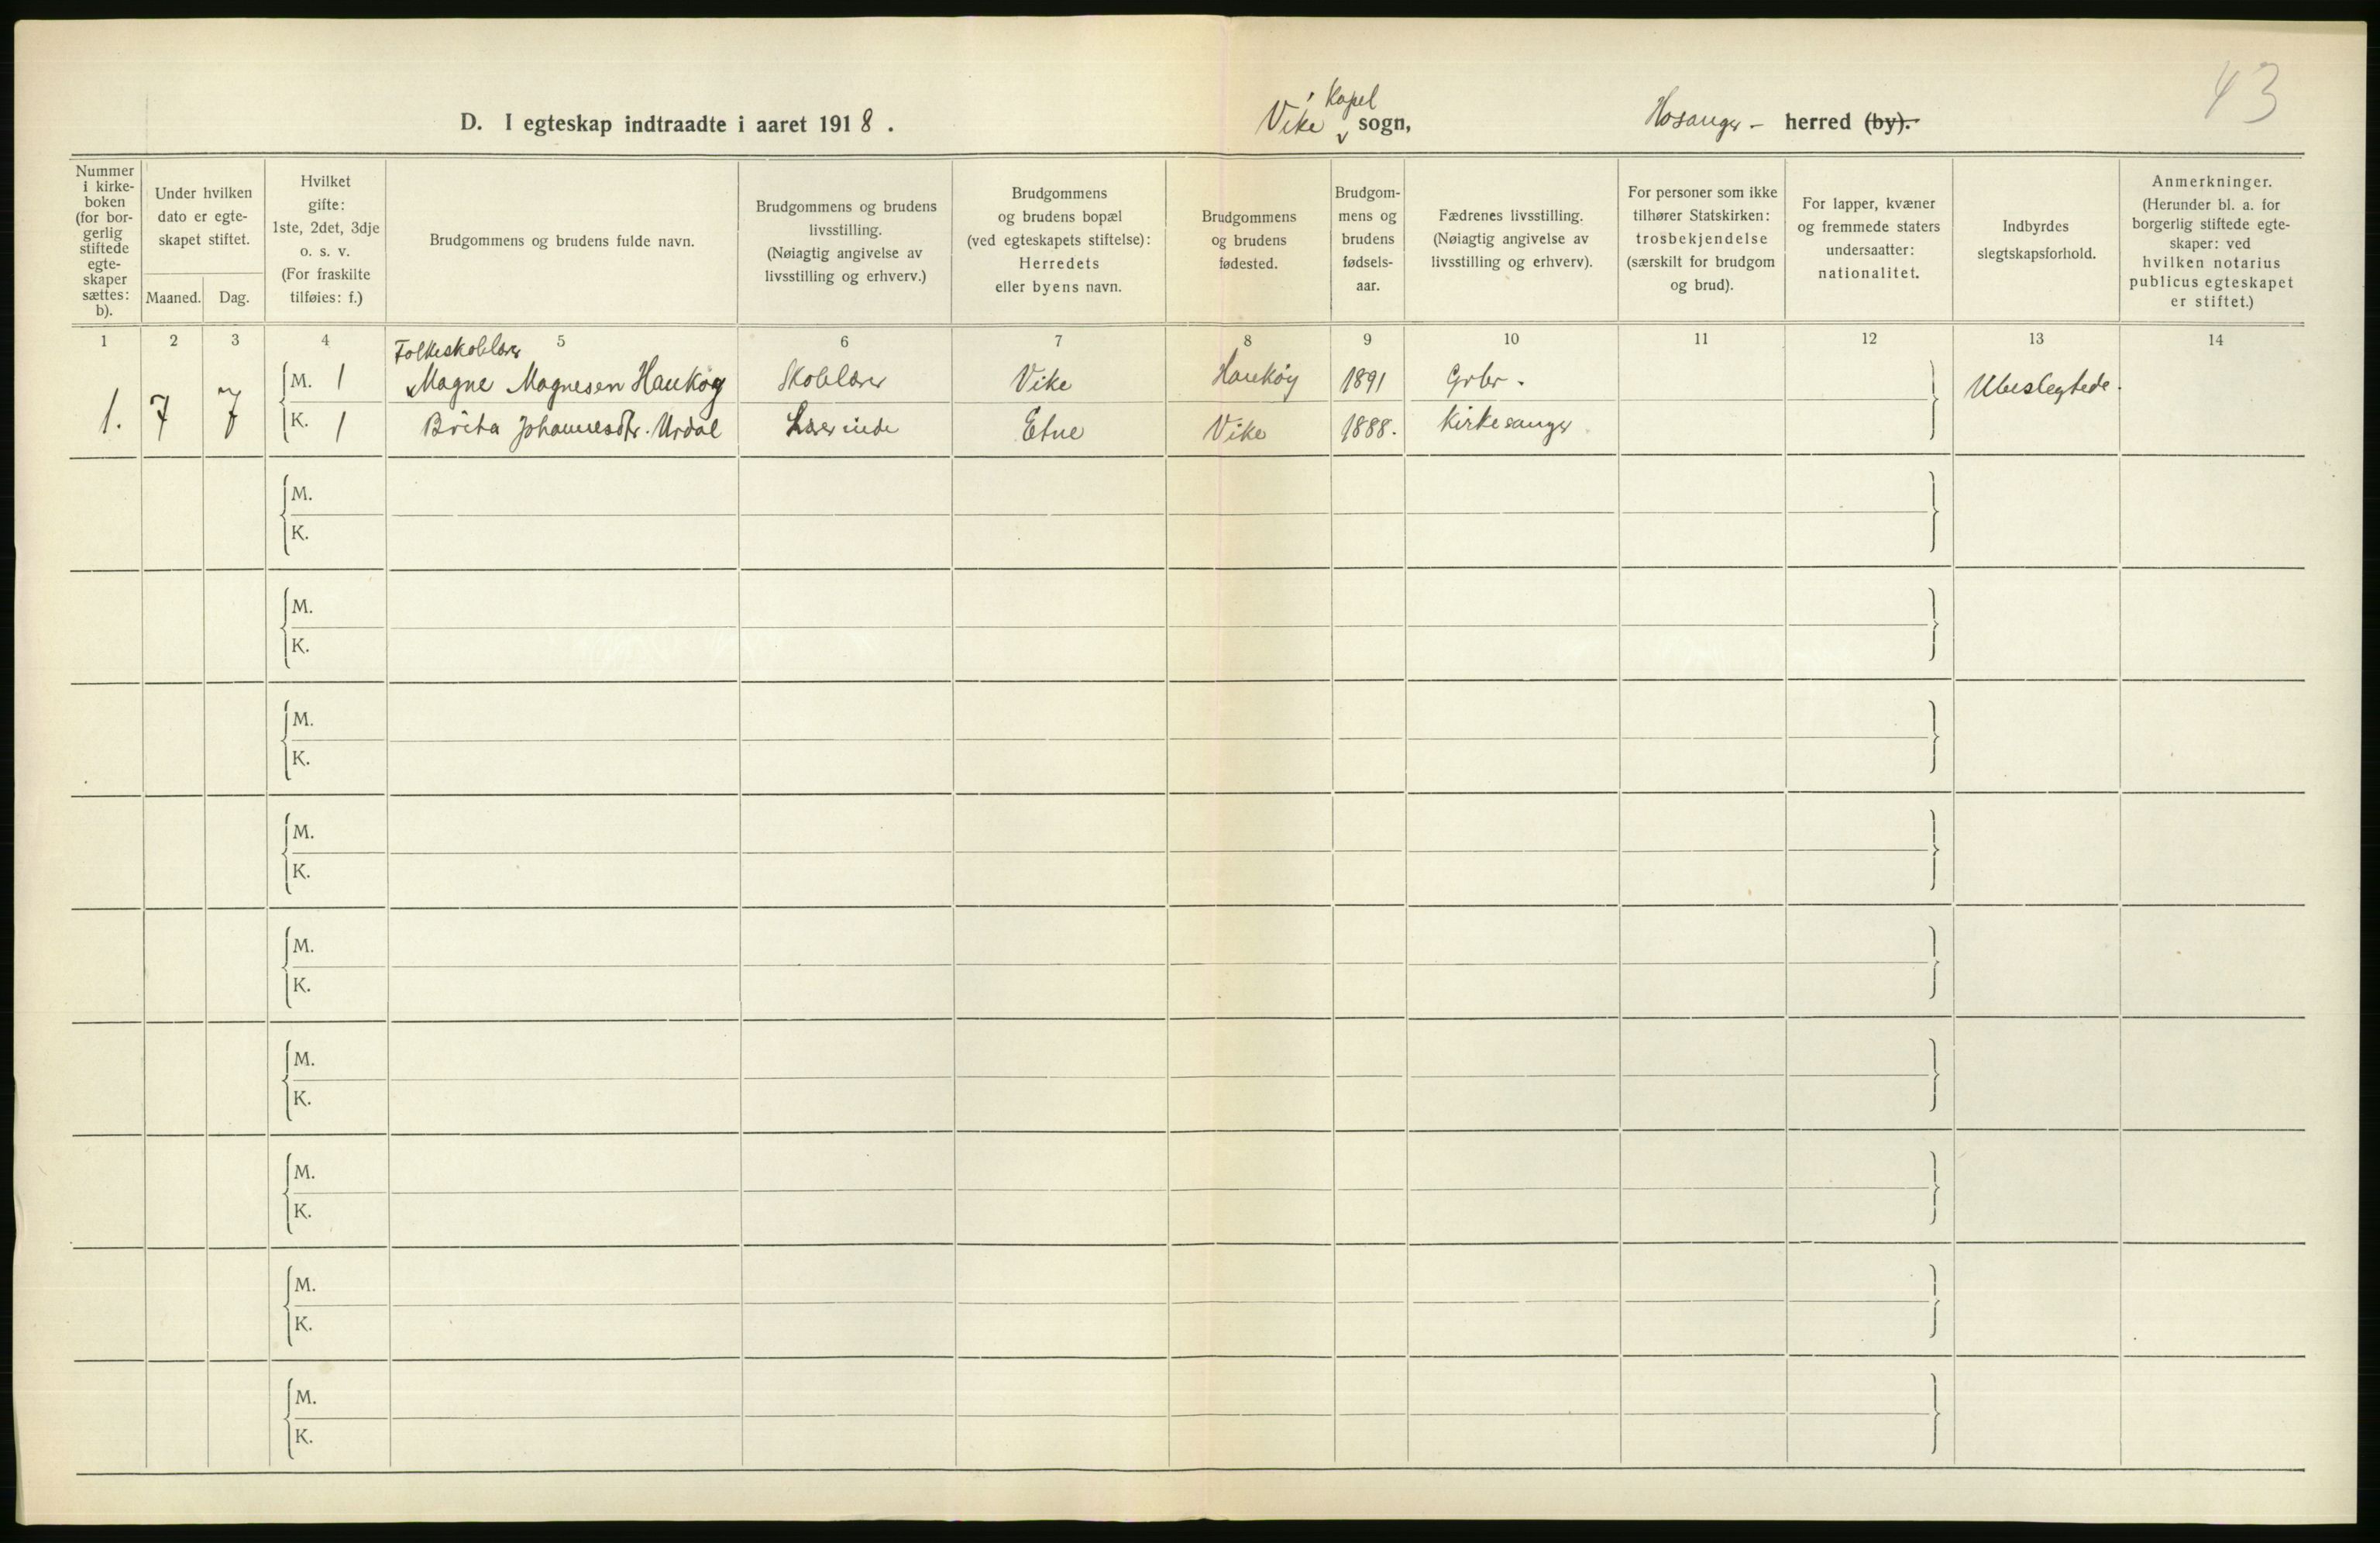 43
D. I egteskap indtraadte i aaret 1918.
Vike kapel sogn,
Hosanger- herred (by).
Nummer
i kirke-
boken
(for bor-
gerlig
stiftede
egte-
skaper
sættes:
b).
Under hvilken
dato er egte-
skapet stiftet.
Maaned.
Dag.
Hvilket
gifte:
1ste, 2det, 3dje
o. s. v.
(For fraskilte
tilføies: f.)
Brudgommens og brudens fulde navn.
Brudgommens og brudens
livsstilling.
(Nøiagtig angivelse av
livsstilling og erhverv.)
Brudgommens
og brudens bopæl
(ved egteskapets stiftelse):
Herredets
eller byens navn.
Brudgommens
og brudens
fødested.
Brudgom-
mens og
brudens
fødsels-
aar.
Fædrenes livsstilling.
(Nøiagtig angivelse av
livsstilling og erhverv).
For personer som ikke
tilhører Statskirken:
trosbekjendelse
(særskilt for brudgom
og brud).
For lapper, kvæner
og fremmede staters
undersaatter:
nationalitet.
Indbyrdes
slegtskapsforhold.
Anmerkninger.
(Herunder bl. a. for
borgerlig stiftede egte-
skaper: ved
hvilken notarius
publicus egteskapet
er stiftet.)
1 2 3 4 5 6 7 8 9 10 11 12 13 14
Folkeskolelærer
M. 1 Magne Magnesen Haukøy Skolelærer Vike Haukøy 1891 Grbr.
1. 7 7 Ubeslegtede.
K. 1 Brita Johannesdtr. Urdal Lærerinde Etne Vike 1888. Kirkesanger
M.
K.
M.
K.
M.
K.
M.
K.
M.
K.
M.
K.
M.
K.
M.
K.
M.
K.